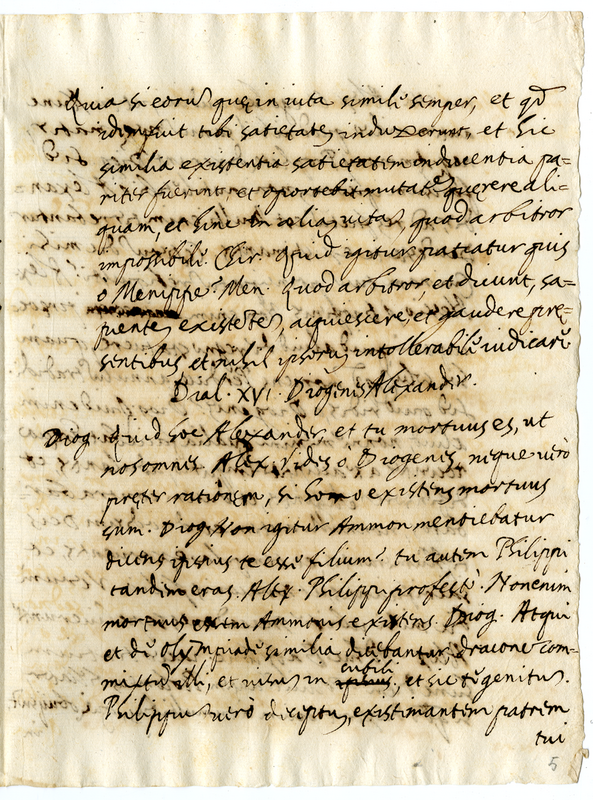 Quia si eorū quę in vita similiū semper, et qd̄
idem fuit tibi satietatem induxerunt, et hic
similia existentia satietatem inducentia pa=
riter fuerint, et oportebit mutatē quęrere ali=
quam, et hinc in aliam vitam, quod arbitror
impossibile. Chir. Quid igitur patiatur quis
o Menippe? Men. Quod arbitror, et dicunt, sa=
pientem existētem, acquiescere, et gaudere prę=
sentibus et nihil ipsorum intollerabile iudicare
Dial. XVI. Diogenis Alexandri.
Diog. Quid hoc Alexander et tu mortuus es, ut
nos omnes Alex. Vides o Diogenes, neque vero
pręter rationem, si homo existens mortuus
sum. Diog. Non igitur Ammon mentiebatur
dicens ipsius te esse filium? tu autem Philippi
tandem eras. Alex. Philippi profectò. Non enim
mortuus essem Ammonis existens. Diog. Atqui
et de Olympiade similia dicebantur, dracone com=
mixtū illi, et visum in cubili, et sic tē genitum.
Philippum verò deceptum, existimantem patrem
tui
5